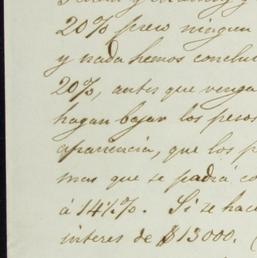 20% pero ningun
y nada hemos conclui
20%, antes que venga
hagan bajar los pesos
apariencia, que los p
mas que se podia co
á 14½%. Si se hac
interes de $13000. (